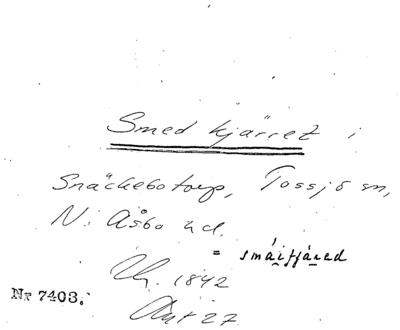 Smedkjärret i
Snäckebotorp, Tossjö sn,
N. Åsbo hd.
= smáiʃjáred
1842
Nr 7403.
Akt 27